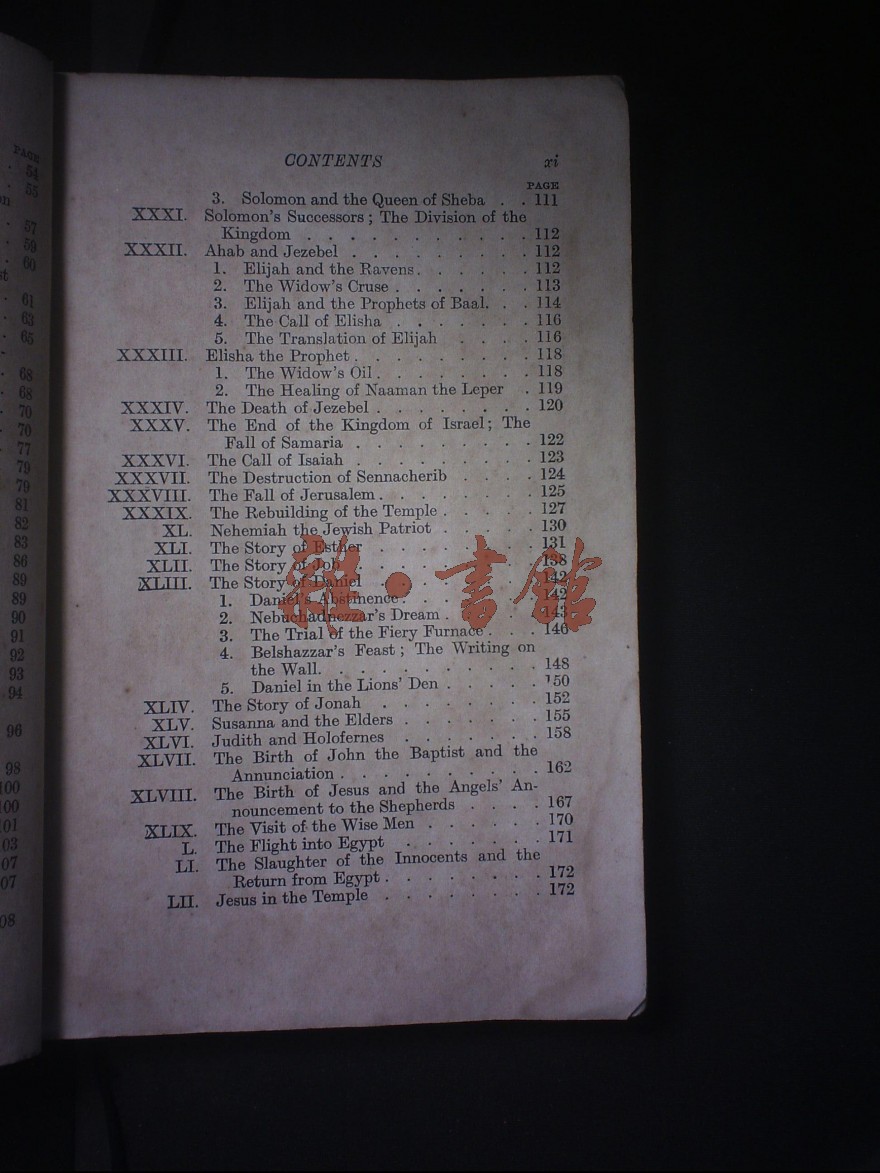 PAGE
54
55
57
59
60
61
63
65
68
68
70
70
77
79
79
81
82
83
86
89
89
90
91
92
93
94
96
98
100
100
01
03
07
07
08
CONTENTS xi
PAGE
3. Solomon and the Queen of Sheba . . 111
XXXI. Solomon's Successors ; The Division of the
Kingdom . . . . . . . . . . 112
XXXII. Ahab and Jezebel . . . . . . . . . 112
1. Elijah and the Ravens . . . . . . 112
2. The Widow's Cruse . . . . . . . 113
3. Elijah and the Prophets of Baal. . . 114
4. The Call of Elisha . . . . . . . 116
5. The Translation of Elijah . . . . 116
XXXIII. Elisha the Prophet . . . . . . . . . 118
1. The Widow's Oil . . . . . . . . 118
2. The Healing of Naaman the Leper . 119
XXXIV. The Death of Jezebel . . . . . . . . 120
XXXV. The End of the Kingdom of Israel ; The
Fall of Samaria . . . . . . . . . 122
XXXVI. The Call of Isaiah . . . . . . . . . 123
XXXVII. The Destruction of Sennacherib . . . . 124
XXXVIII. The Fall of Jerusalem . . . . . . . . 125
XXXIX. The Rebuilding of the Temple . . . . . 127
XL. Nehemiah the Jewish Patriot . . . . . 130
XLI. The Story of Esther . . . . . . . . 131
XLII. The Story of Job . . . . . . . . . 138
XLIII. The Story of Daniel . . . . . . . . 142
1. Daniel's Abstinence . . . . . . . 142
2. Nebuchadnezzar's Dream . . . . . 143
3. The Trial of the Fiery Furnace . . . 146
4. Belshazzar's Feast ; The Writing on
the Wall. . . . . . . . . . . 148
5. Daniel in the Lions' Den . . . . . 150
XLIV. The Story of Jonah . . . . . . . . 152
XLV. Susanna and the Elders . . . . . . 155
XLVI. Judith and Holofernes . . . . . . 158
XLVII. The Birth of John the Baptist and the
Annunciation . . . . . . . . . . 162
XLVIII. The Birth of Jesus and the Angels' An-
nouncement to the Shepherds . . . . 167
XLIX. The Visit of the Wise Men . . . . . . 170
L. The Flight into Egypt . . . . . . . 171
LI. The Slaughter of the Innocents and the
Return from Egypt . . . . . . . . 172
LII. Jesus in the Temple . . . . . . . . 172
書館